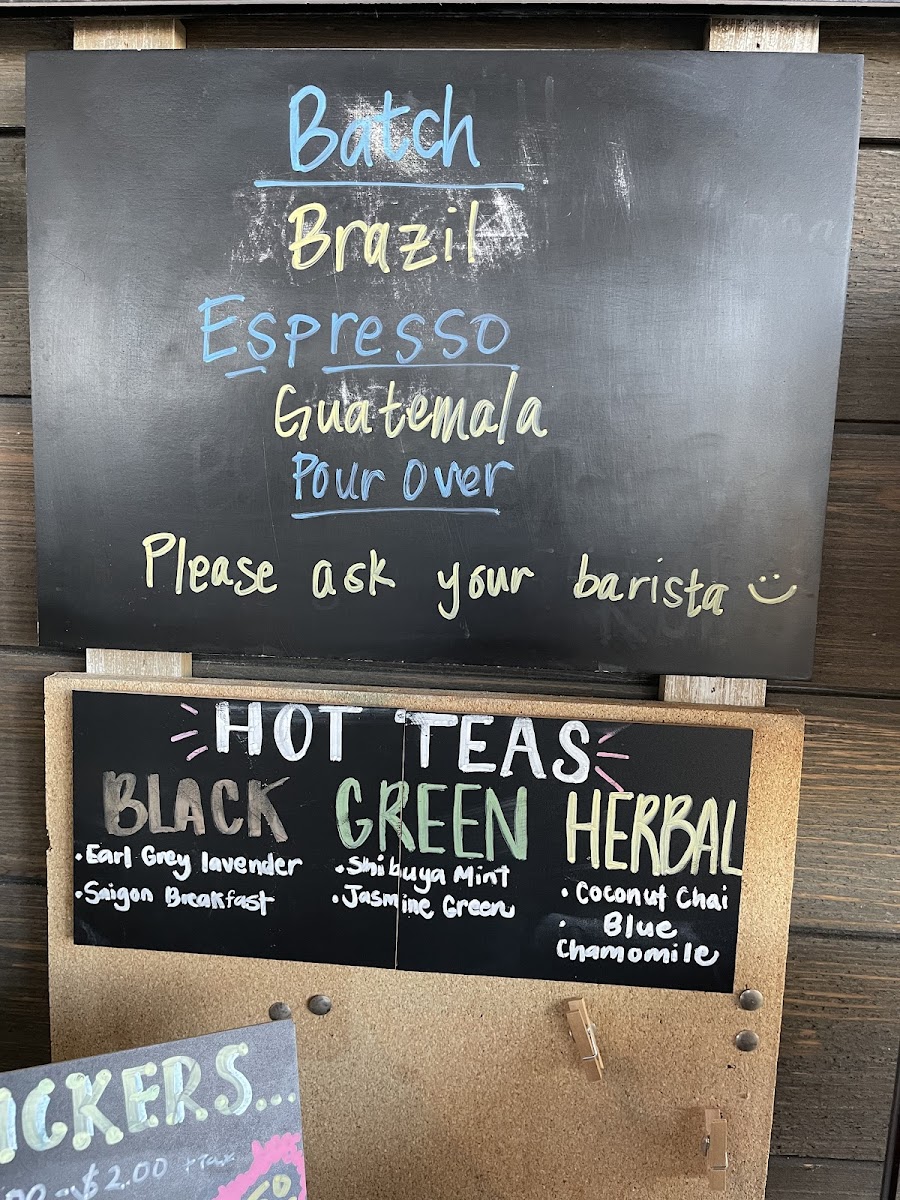 Batch
Brazil
Espresso
Guatemala
Pour Over
Please ask your barista
HOT TEAS
BLACK
• Earl Grey lavender
• Saigon Breakfast
GREEN
• Shibuya Mint
• Jasmine Green
HERBAL
• Coconut Chai
• Blue
Chamomile
ICKERS...
00-$2.00 +tax